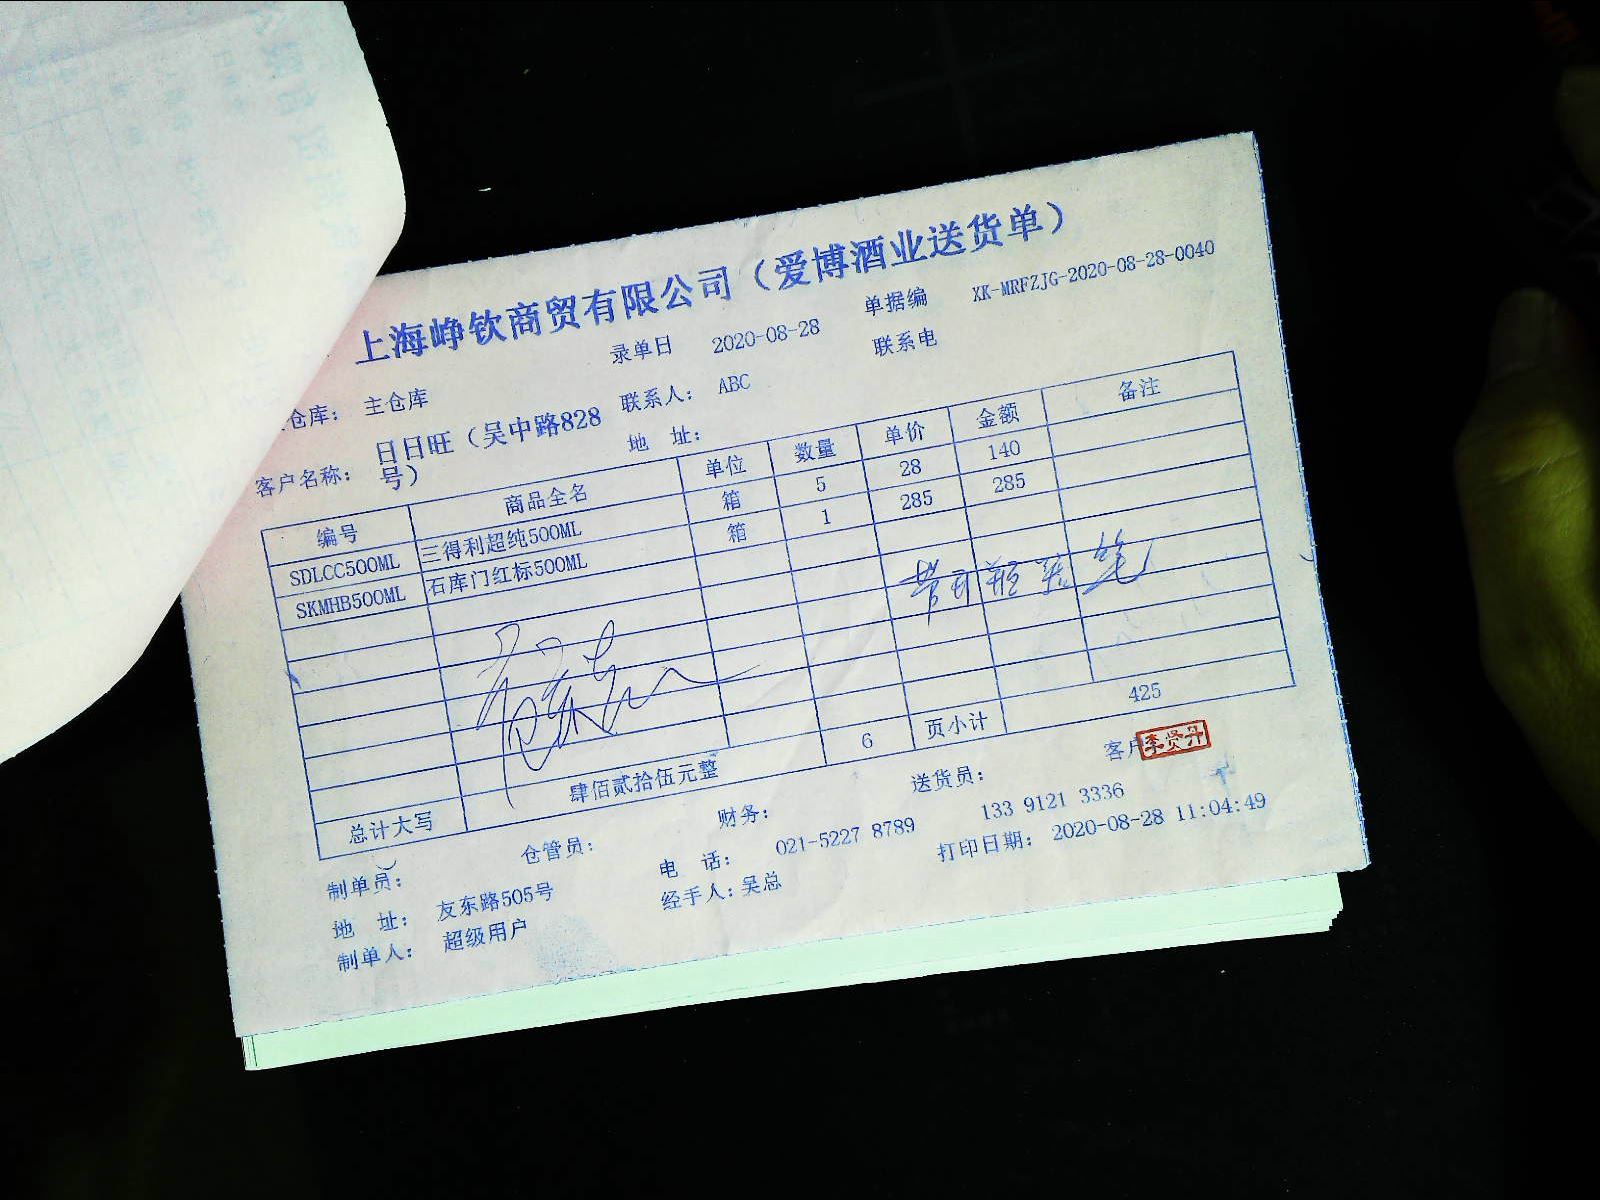 上海峥钦商贸有限公司（爱博酒业送货单）
录单日 2020-08-28 单据编 XK-MRFZJG-2020-08-28-0040
仓库： 主仓库 联系人： ABC 联系电
客户名称： 日日旺（吴中路828号） 地 址：
编号 商品全名 单位 数量 单价 金额 备注
SDLCC500ML 三得利超纯500ML 箱 5 28 140
SKMHB500ML 石库门红标500ML 箱 1 285 285
总计大写 肆佰贰拾伍元整 6 页小计 425
制单员： 仓管员： 财务： 送货员： 客户
李贤丹
地 址： 友东路505号 电 话： 021-5227 8789 133 9121 3336
制单人： 超级用户 经手人： 吴总 打印日期： 2020-08-28 11:04:49